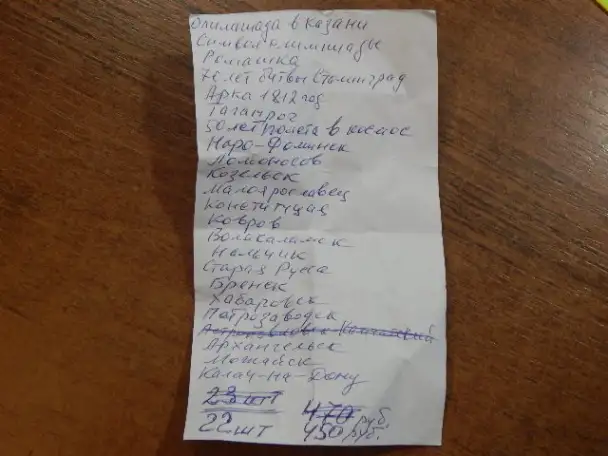 Олимпиада в Казани
Символ Олимпиады
Ромашка
70 лет битвы Сталинград
Арка 1812 год
Таганрог
50 лет полета в космос
Наро-Фоминск
Ломоносов
Козельск
Малоярославец
Конституция
Ковров
Волакаламск
Нальчик
Старая Руса
Брянск
Хабаровск
Патрозаводск
Архангельск
Можайск
Калач-На-Дону
23 шт 470 руб.
22 шт 450 руб.